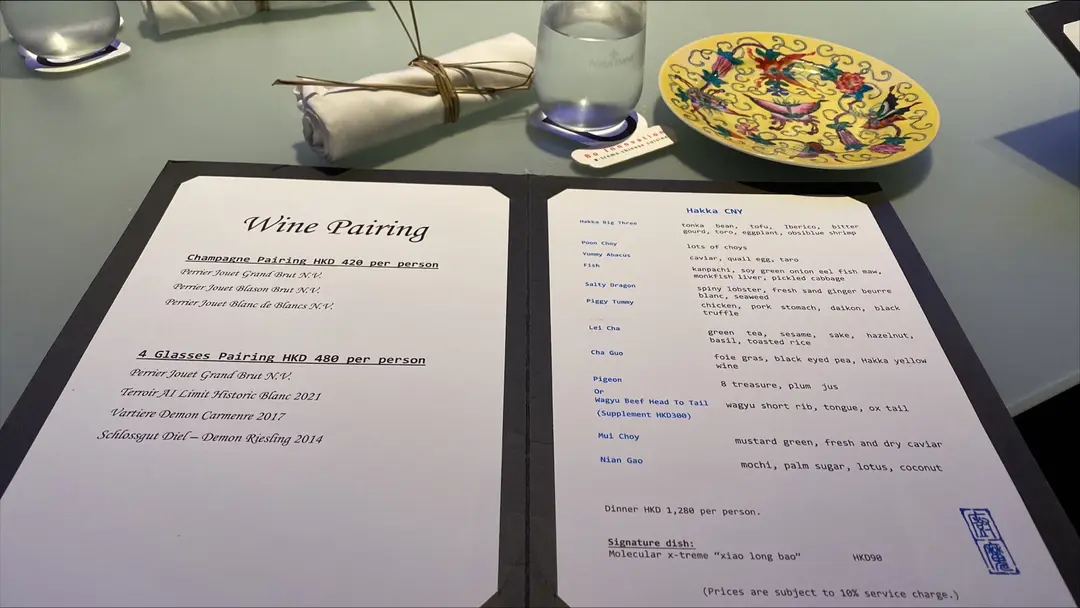 Bo innovation
X-treme chinese cuisine
Wine Pairing
Champagne Pairing HKD 420 per person
Perrier Jouet Grand Brut N.V.
Perrier Jouet Blason Brut N.V.
Perrier Jouet Blanc de Blancs N.V.
4 Glasses Pairing HKD 480 per person
Perrier Jouet Grand Brut N.V.
Terroir Al Limit Historic Blanc 2021
Vartiere Demon Carmenre 2017
Schlossgut Diel – Demon Riesling 2014
Hakka CNY
Hakka Big Three tonka bean, tofu, Iberico, bitter
gourd, toro, eggplant, obsiblue shrimp
Poon Choy lots of choys
Yummy Abacus caviar, quail egg, taro
Fish kanpachi, soy green onion eel fish maw,
monkfish liver, pickled cabbage
Salty Dragon spiny lobster, fresh sand ginger beurre
blanc, seaweed
Piggy Tummy chicken, pork stomach, daikon, black
truffle
Lei Cha green tea, sesame, sake, hazelnut,
basil, toasted rice
Cha Guo foie gras, black eyed pea, Hakka yellow
wine
Pigeon 8 treasure, plum jus
Or
Wagyu Beef Head To Tail wagyu short rib, tongue, ox tail
(Supplement HKD300)
Mui Choy mustard green, fresh and dry caviar
Nian Gao mochi, palm sugar, lotus, coconut
Dinner HKD 1,280 per person.
Signature dish:
Molecular x-treme “xiao long bao” HKD90
(Prices are subject to 10% service charge.)